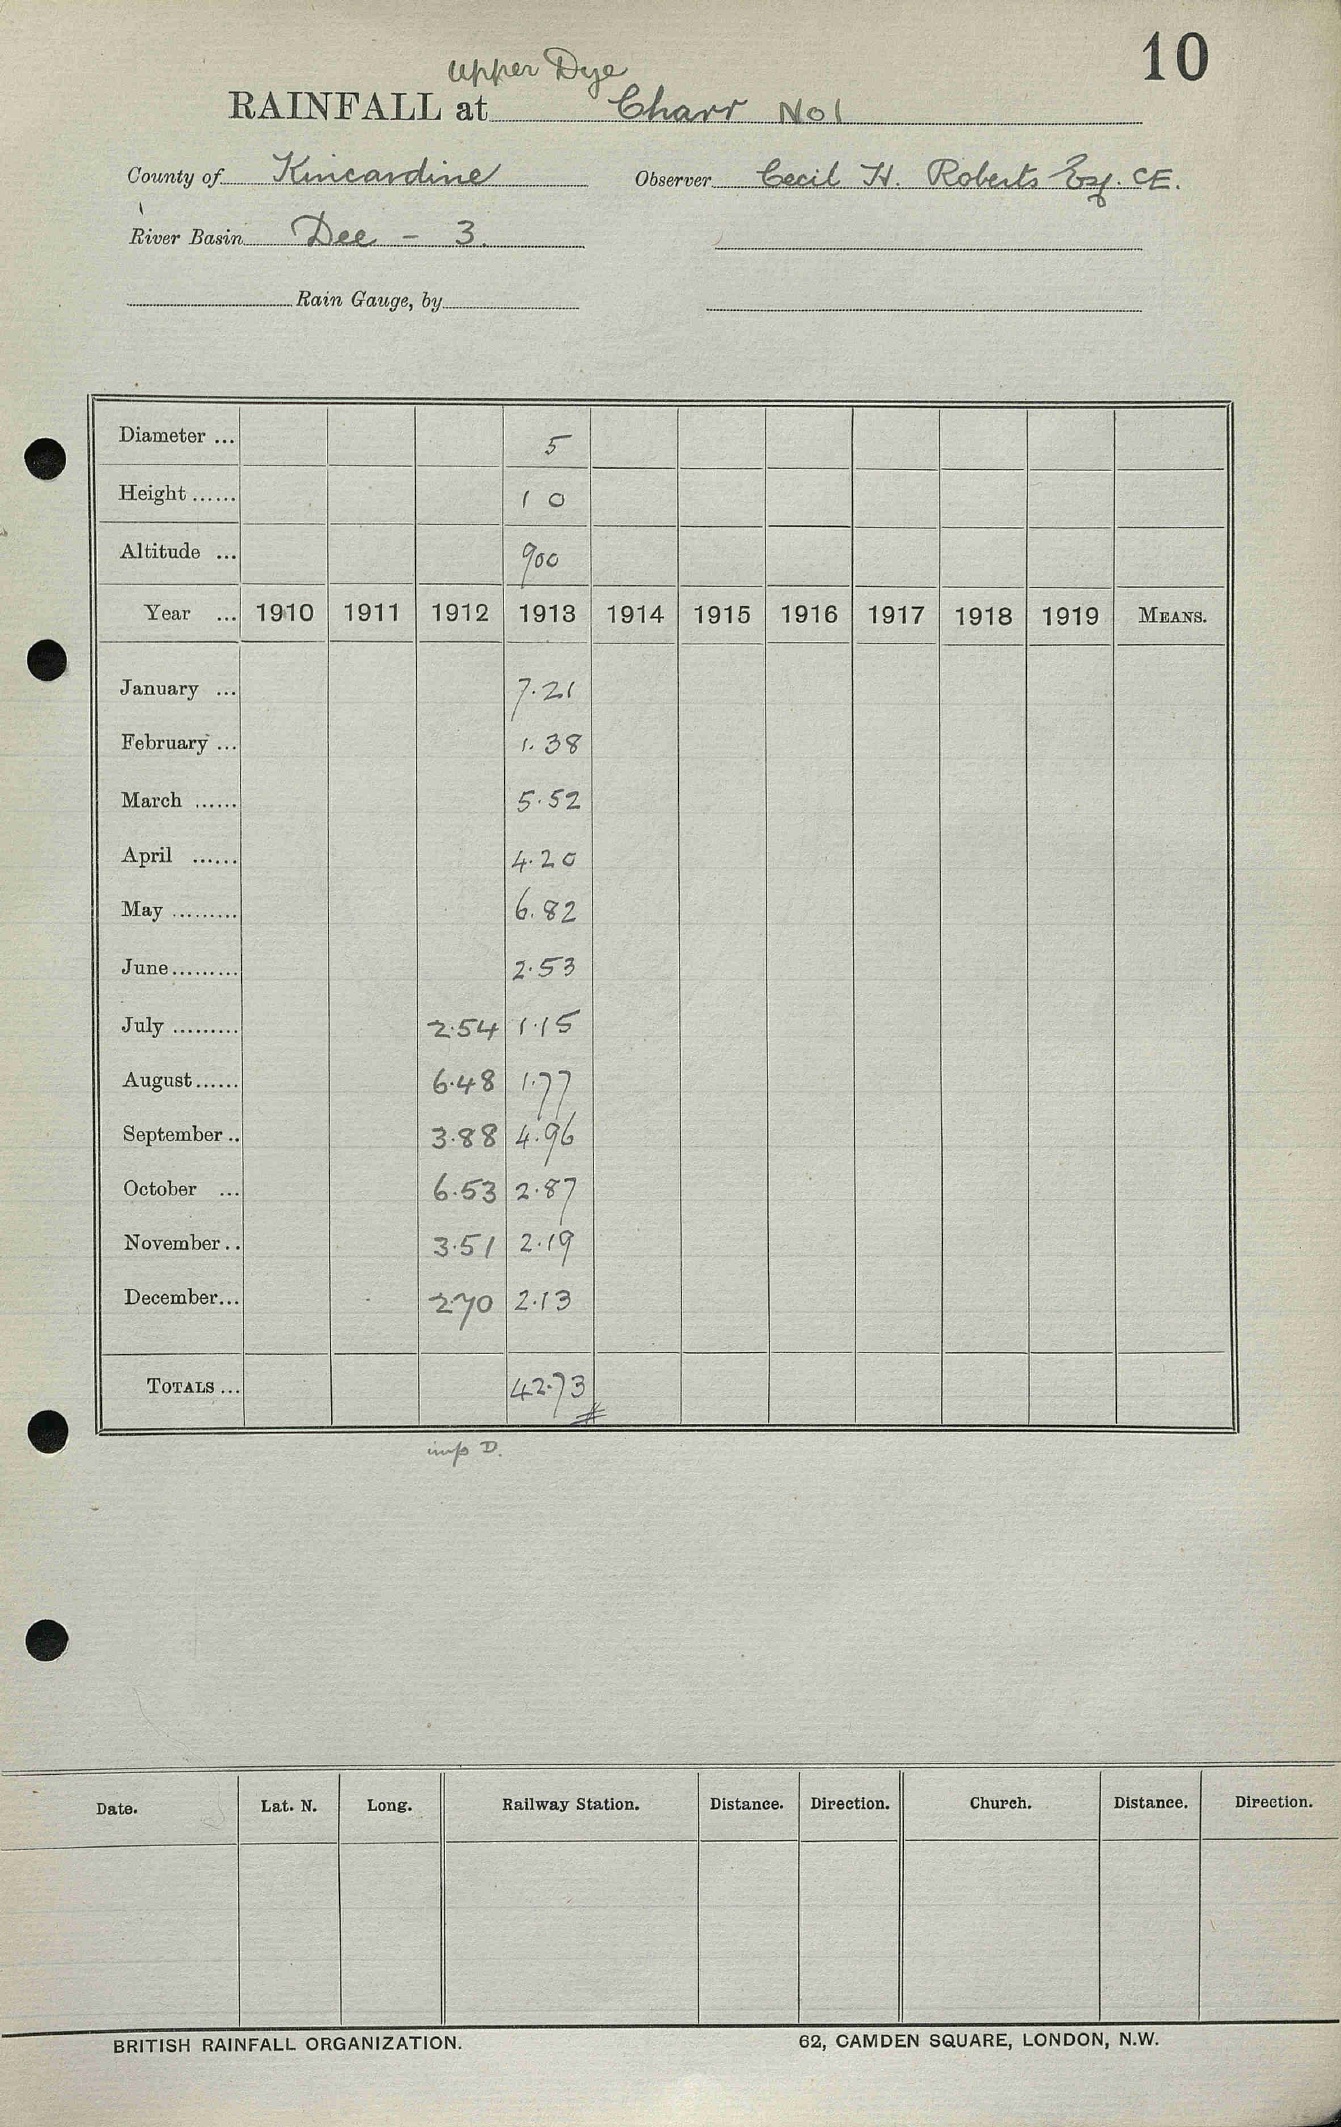 10
Upper Dye
RAINFALL at Charr No 1
County of Kincardine Observer Cecil H. Roberts Esq. CE.
River Basin Dee - 3.
Rain Gauge, by
Diameter ... 5
Height ...... 1 0
Altitude ... 900
Year ... 1910 1911 1912 1913 1914 1915 1916 1917 1918 1919 MEANS.
January ... 7.21
February ... 1.38
March ...... 5.52
April ...... 4.20
May ......... 6.82
June ......... 2.53
July ......... 2.54 1.15
August ...... 6.48 1.77
September .. 3.88 4.96
October ... 6.53 2.87
November .. 3.51 2.19
December ... 2.70 2.13
TOTALS ... 42.73
imp D.
Date. Lat. N. Long. Railway Station. Distance. Direction. Church. Distance. Direction.
BRITISH RAINFALL ORGANIZATION. 62, CAMDEN SQUARE, LONDON, N.W.